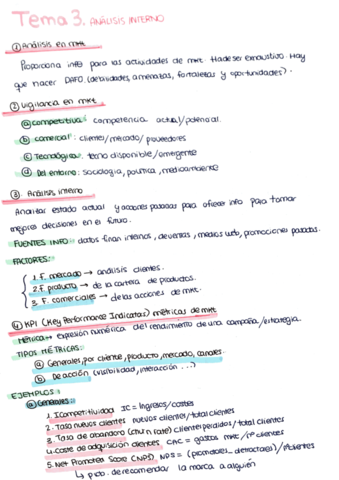 Tema 3. ANÁLISIS INTERNO
① Análisis en mkt
Proporciona info para las actividades de mkt. Ha de ser exhaustivo. Hay
que hacer DAFO (debilidades, amenazas, fortalezas y oportunidades).
② Vigilancia en mkt
ⓐ competitiva: competencia actual/potencial.
ⓑ comercial: clientes/mercado/proveedores
ⓒ Tecnológica: tecno disponible/emergente
ⓓ Del entorno: sociología, política, medioambiente
③ Análisis interno
Analizar estado actual y acciones pasadas para ofrecer info para tomar
mejores decisiones en el futuro.
FUENTES INFO: datos finan internos, de ventas, medios web, promociones pasadas.
FACTORES:
1. F. mercado → análisis clientes.
2. F. producto → de la cartera de productos.
3. F. comerciales → de las acciones de mkt.
④ KPI (Key Performance Indicators) métricas de mkt
Métrica → expresión numérica del rendimiento de una campaña/estrategia.
TIPOS MÉTRICAS:
ⓐ Generales, por cliente, producto, mercado, canales.
ⓑ De acción (visibilidad, interacción ...)
EJEMPLOS:
ⓐ Generales:
1. I competitividad IC = Ingresos/costes
2. Tasa nuevos clientes nuevos clientes/total clientes
3. Tasa de abandono (churn rate) clientes perdidos/total clientes
4. coste de adquisición clientes CAC = gastos mkt/nº clientes
5. Net Promoter Score (NPS) NPS = (promotores _ detractores)/nº clientes
↳ prob. de recomendar la marca a alguien